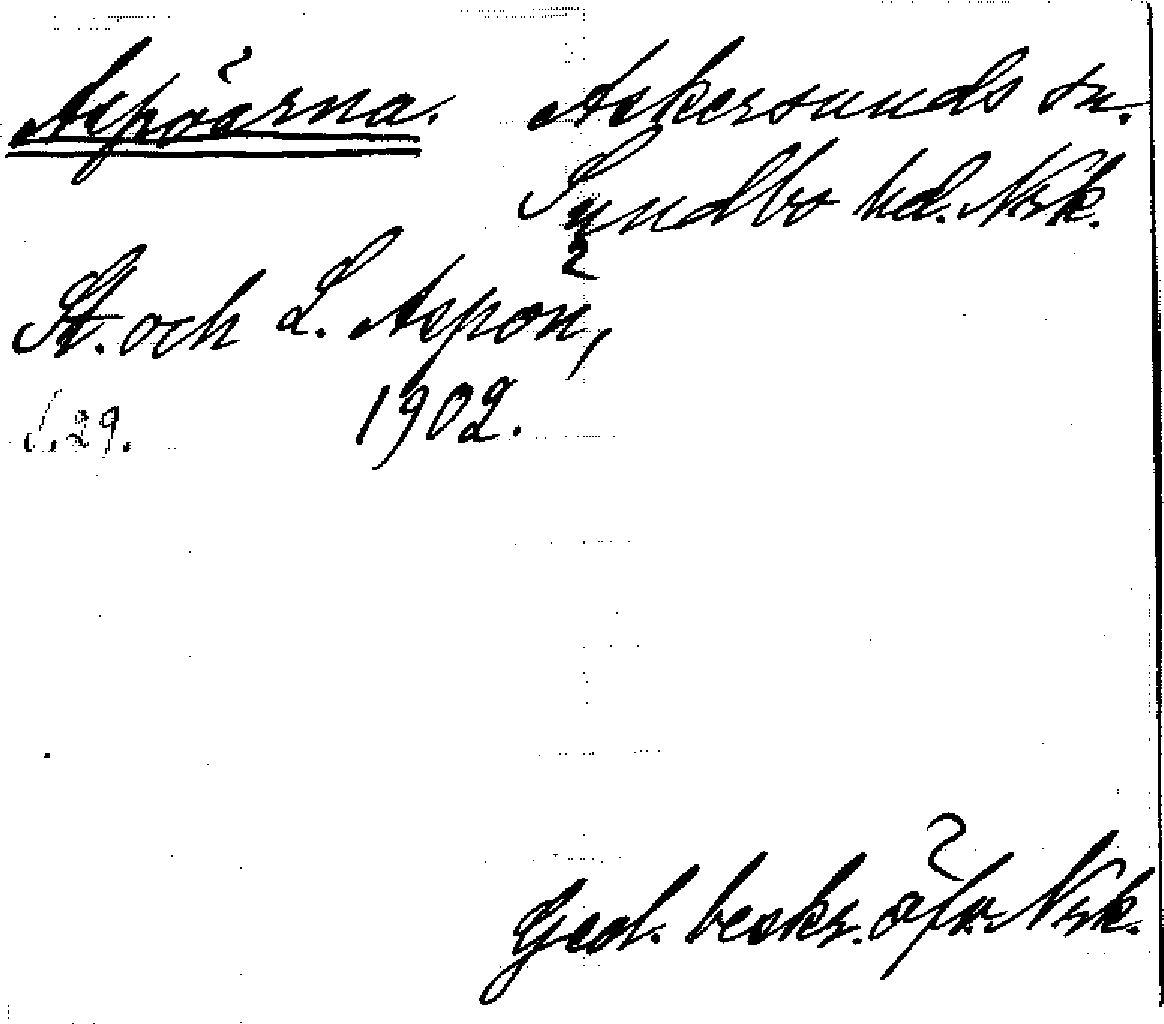 Aspöarna. Askersunds sn.
Sundbo hd. Nrk.
St. och L. Aspön,
S. 29. 1902.
Geol. beskr. öfv. Nrk.